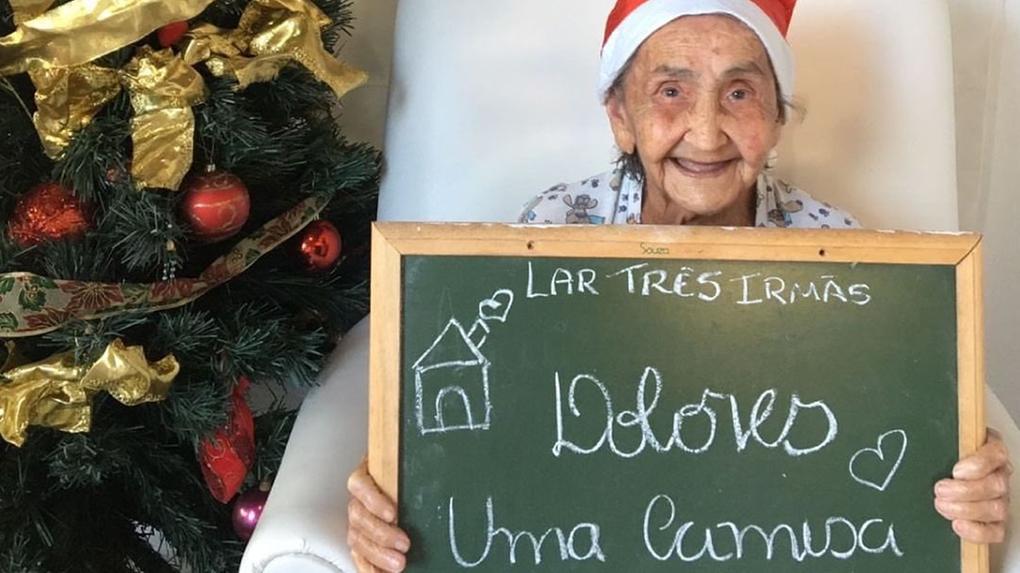 Souza
LAR TRÊS IRMÃS
Dolores
Uma Camisa